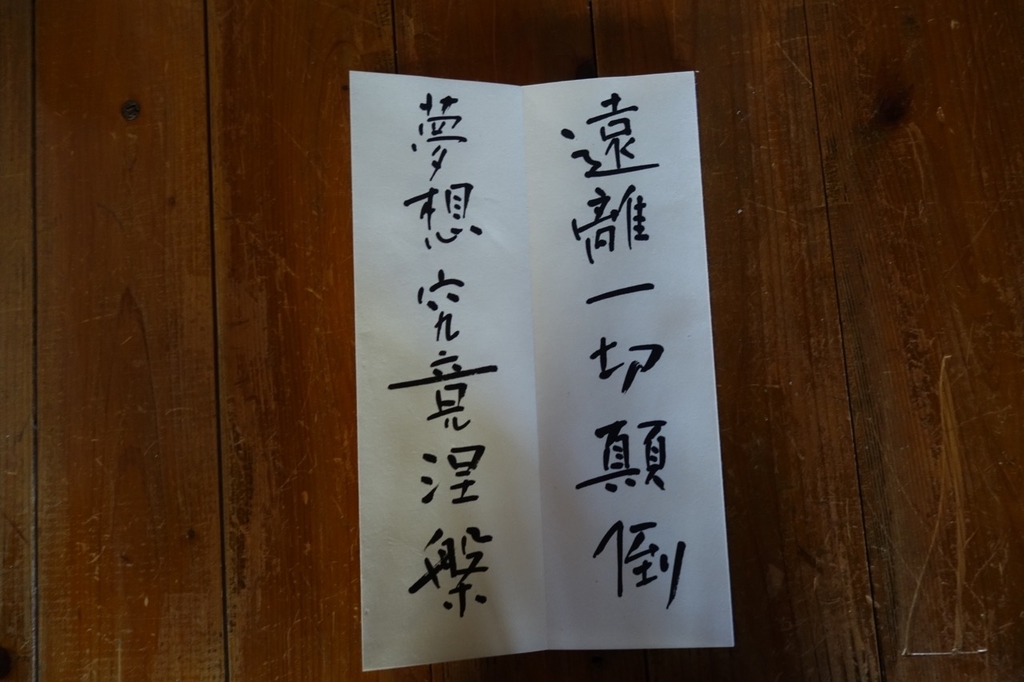 遠離一切顛倒
夢想究竟涅槃